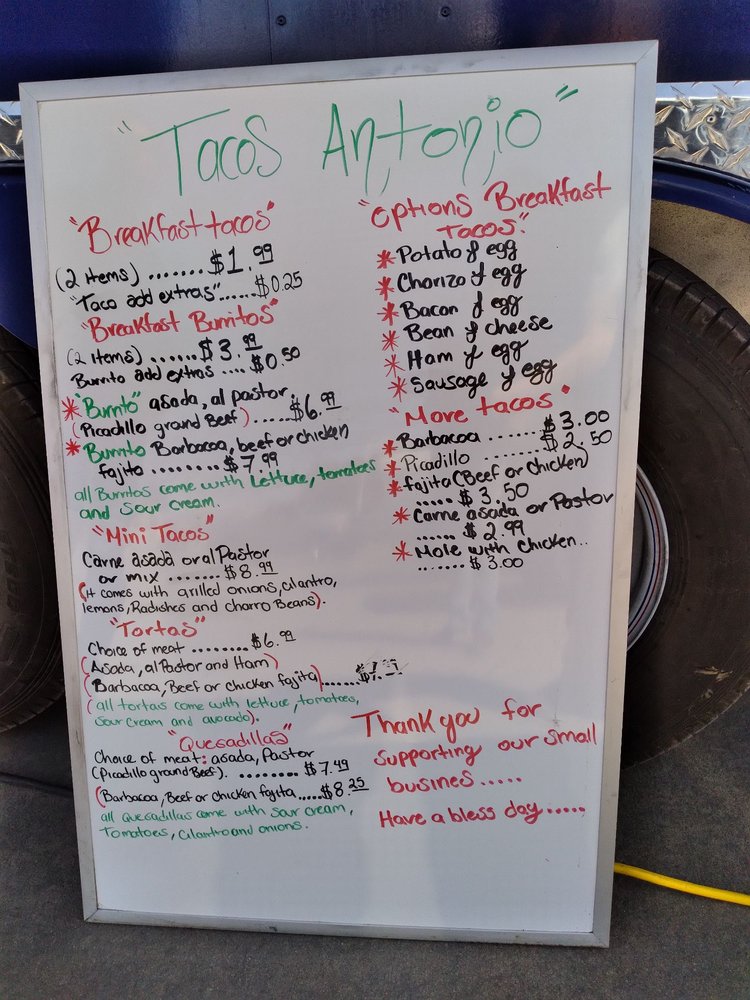 "Tacos Antonio"
"Breakfast tacos"
(2 items) ....... $1.99
"Taco add extras"...... $0.25
"Breakfast Burritos"
(2 items) ...... $3.99
Burrito add extras .... $0.50
* "Burrito" asada, al pastor,
(Picadillo ground Beef) ..... $6.99
* Burrito Barbacoa, beef or chicken
fajita ........ $7.99
all Burritos come with Lettuce, tomatoes
and sour cream.
"Mini Tacos"
Carne asada or al Pastor
or mix ....... $8.99
(it comes with grilled onions, cilantro,
lemons, Radishes and charro Beans).
"Tortas"
Choice of meat ........ $6.99
(Asada, al Pastor and Ham)
(Barbacoa, Beef or chicken fajita)......
(all tortas come with lettuce, tomatoes,
sour cream and avocado).
"Quesadillas"
Choice of meat: asada, Pastor
(Picadillo ground Beef). ........ $7.49
(Barbacoa, Beef or chicken fajita ..... $8.25
all Quesadillas come with sour cream,
Tomatoes, cilantro and onions.
"Options Breakfast
Tacos"
* Potato y egg
* Chorizo y egg
* Bacon y egg
* Bean y cheese
* Ham y egg
* Sausage y egg
"More tacos"
* Barbacoa ........ $3.00
* Picadillo ......... $2.50
* fajita (Beef or chicken)
..... $3.50
* Carne asada or Pastor
...... $2.99
* Mole with chicken..
....... $3.00
Thank you for
supporting our small
busines.....
Have a bless day.....